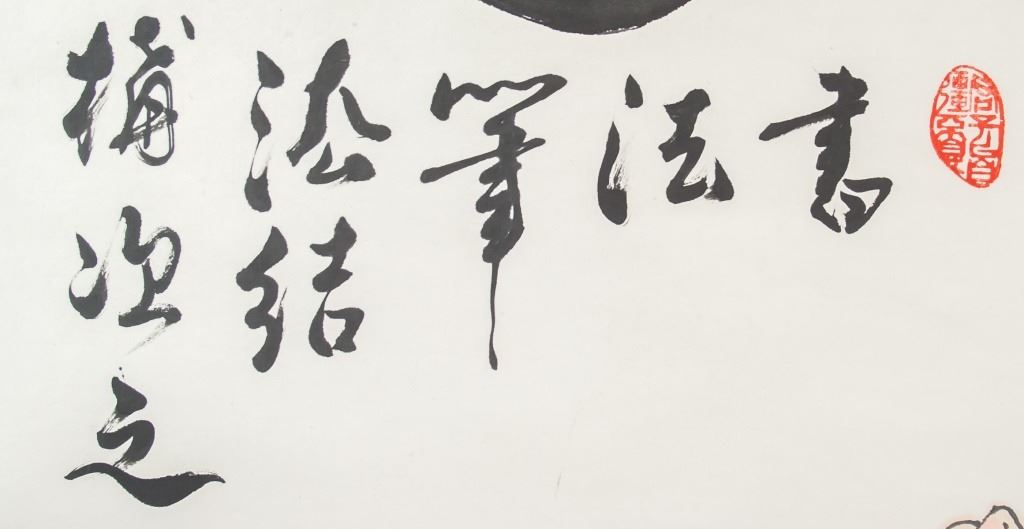 書
法
筆
法結
構次之